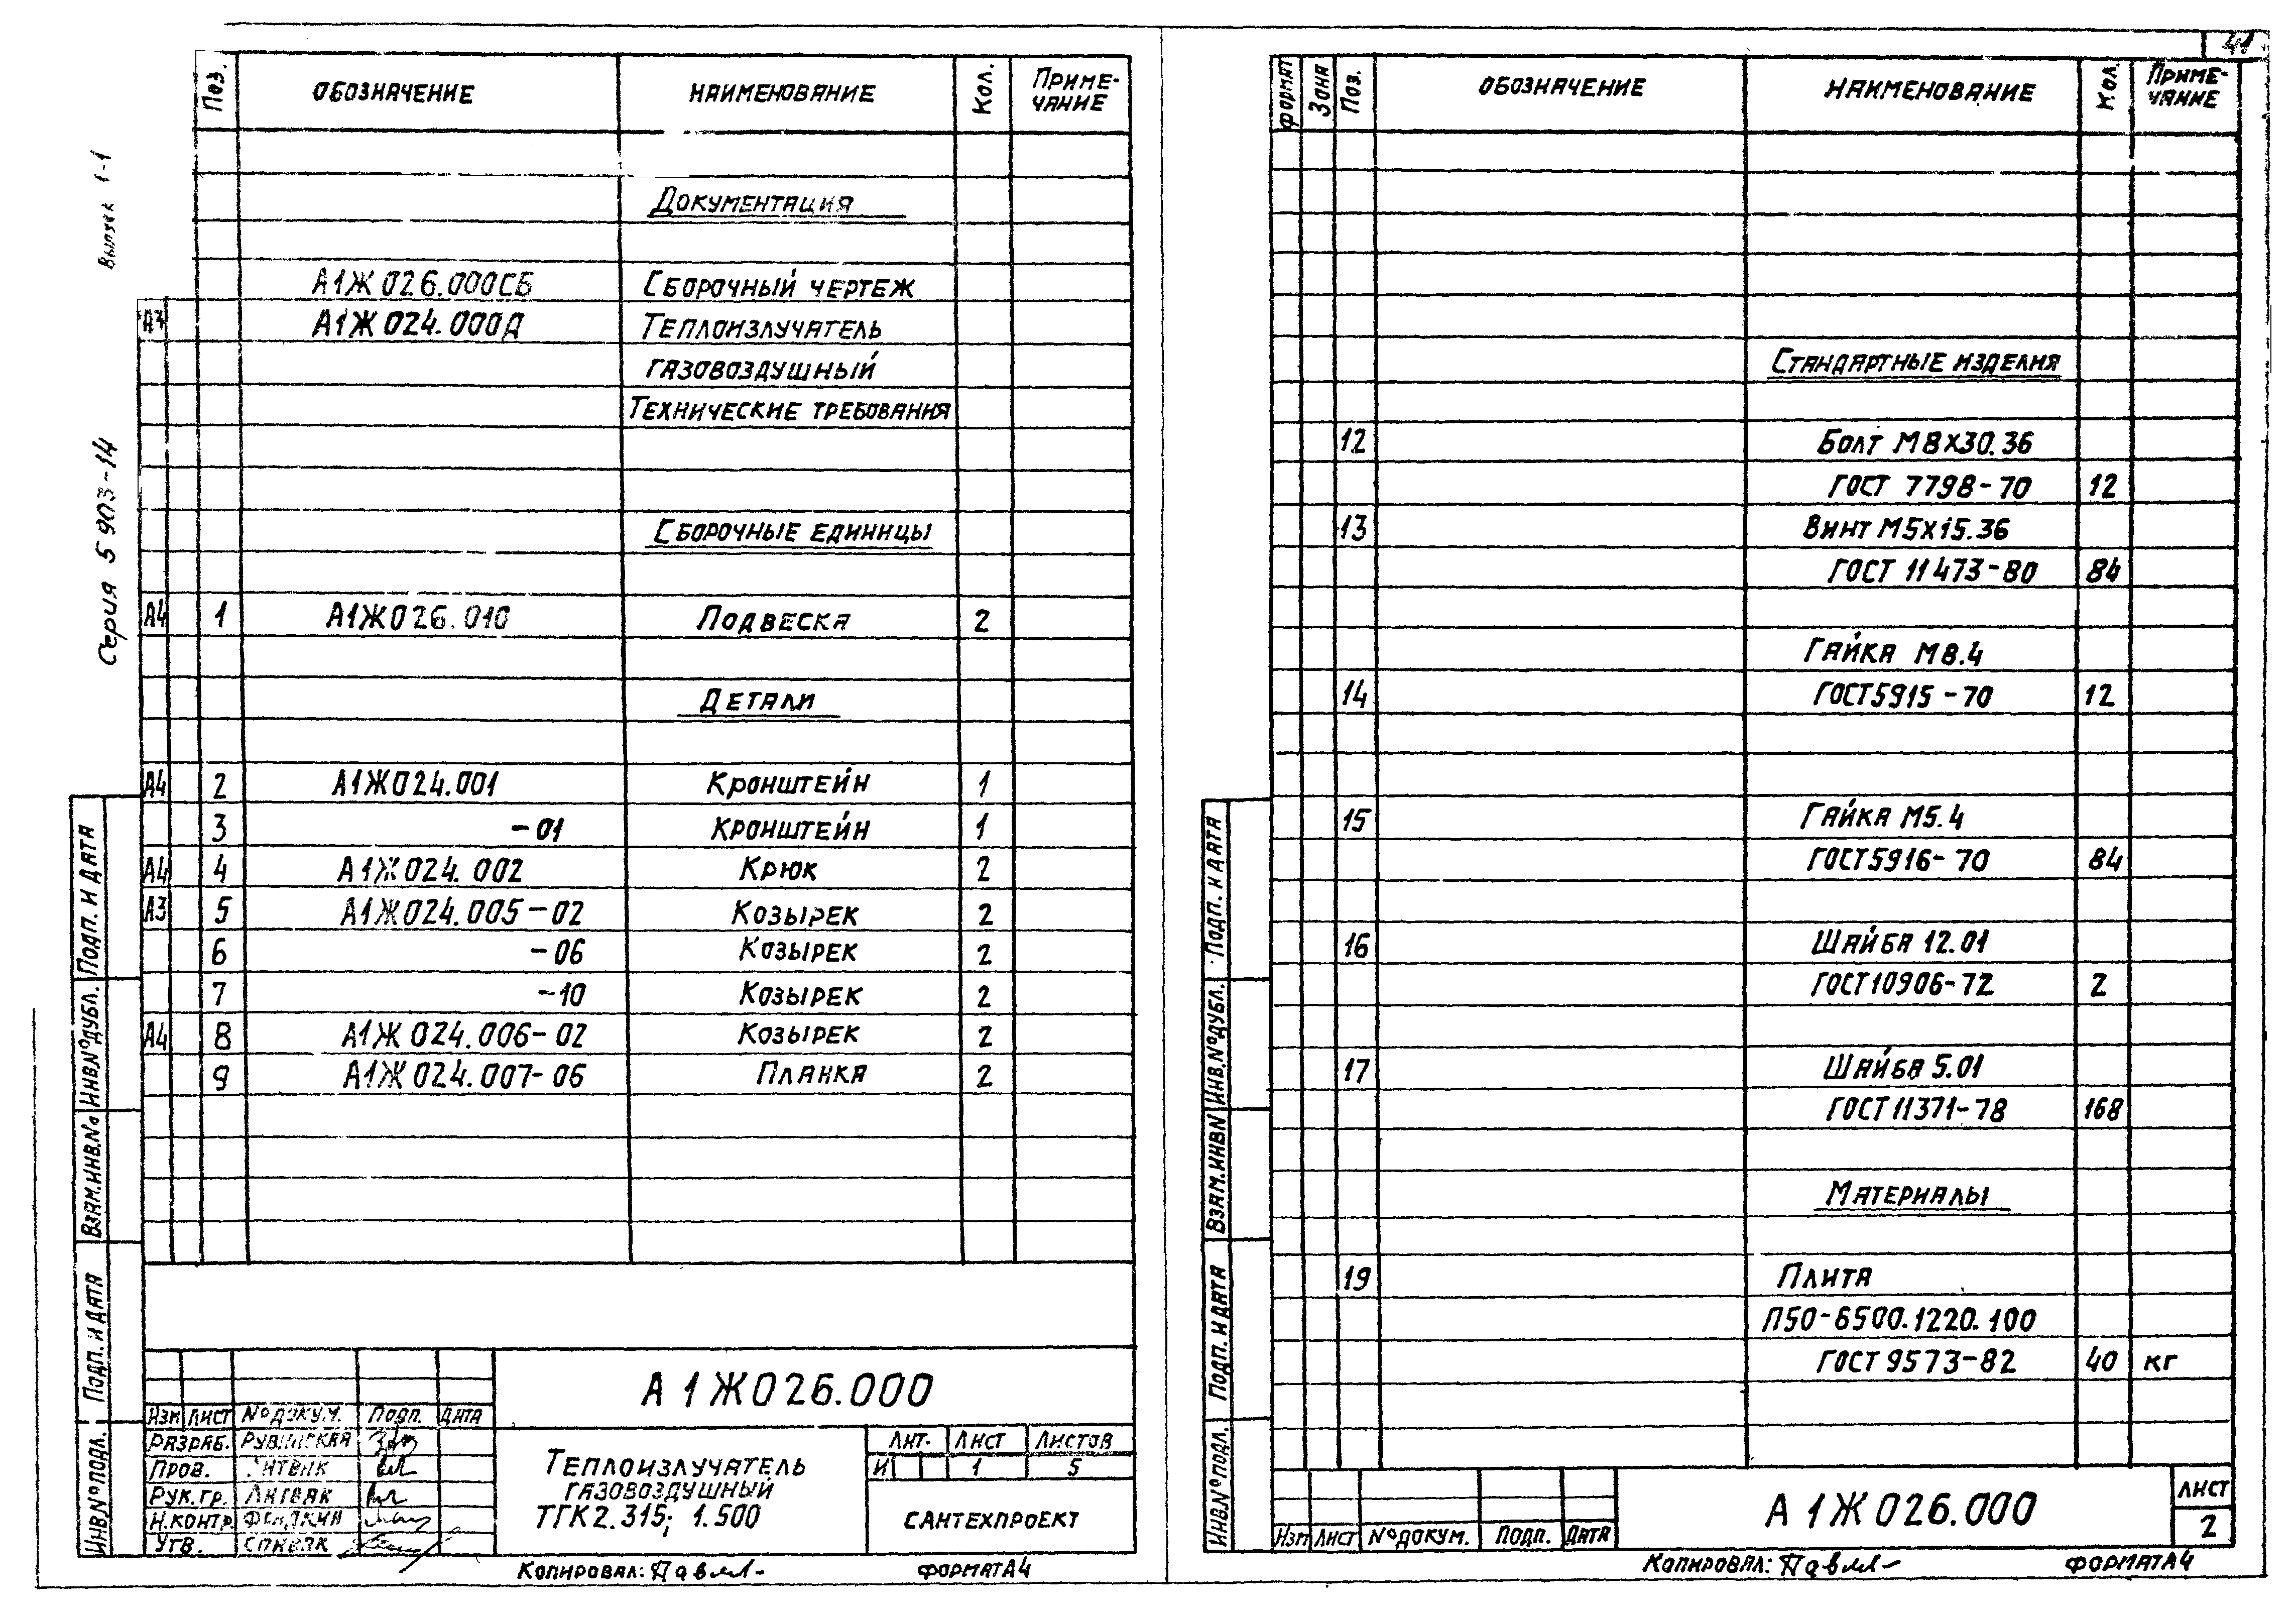 41
Выпуск 1-1
Серия 5 903-14
Поз. ОБОЗНАЧЕНИЕ НАИМЕНОВАНИЕ Кол. ПРИМЕ-
ЧАНИЕ
ДОКУМЕНТАЦИЯ
А1Ж 026.000СБ СБОРОЧНЫЙ ЧЕРТЕЖ
А3 А1Ж 024.000Д ТЕПЛОИЗЛУЧАТЕЛЬ
ГАЗОВОЗДУШНЫЙ
ТЕХНИЧЕСКИЕ ТРЕБОВАНИЯ
СБОРОЧНЫЕ ЕДИНИЦЫ
А4 1 А1Ж026.010 ПОДВЕСКА 2
ДЕТАЛИ
А4 2 А1Ж024.001 КРОНШТЕЙН 1
3 -01 КРОНШТЕЙН 1
А4 4 А1Ж024.002 КРЮК 2
А3 5 А1Ж024.005-02 КОЗЫРЕК 2
6 -06 КОЗЫРЕК 2
7 -10 КОЗЫРЕК 2
А4 8 А1Ж 024.006-02 КОЗЫРЕК 2
9 А1Ж 024.007-06 ПЛАНКА 2
ПОДП. И ДАТА
ИНВ.№ДУБЛ.
ВЗАМ.ИНВ.№
ПОДП. И ДАТА
ИНВ.№ПОДЛ.
А 1Ж026.000
ИЗМ ЛИСТ №ДОКУМ. ПОДП. ДАТА
РАЗРАБ. РУВИНСКАЯ
ПРОВ. ЛИТВАК
РУК.ГР. ЛИТВАК
Н.КОНТР.
УТВ. СПИВАК
ТЕПЛОИЗЛУЧАТЕЛЬ
ГАЗОВОЗДУШНЫЙ
ТГК2.315; 1.500
ЛИТ. ЛИСТ ЛИСТОВ
И 1 5
САНТЕХПРОЕКТ
КОПИРОВАЛ: Павл- ФОРМАТА4
ФОРМАТ ЗОНА Поз. ОБОЗНАЧЕНИЕ НАИМЕНОВАНИЕ Кол. ПРИМЕ-
ЧАНИЕ
СТАНДАРТНЫЕ ИЗДЕЛИЯ
12 БОЛТ М8Х30.36
ГОСТ 7798-70 12
13 ВИНТ М5Х15.36
ГОСТ 11473-80 84
ГАЙКА М8.4
14 ГОСТ5915-70 12
15 ГАЙКА М5.4
ГОСТ5916-70 84
16 ШАЙБА 12.01
ГОСТ10906-72 2
17 ШАЙБА 5.01
ГОСТ11371-78 168
МАТЕРИАЛЫ
19 ПЛИТА
П50-6500.1220.100
ГОСТ 9573-82 40 кг
ПОДП. И ДАТА
ИНВ.№ДУБЛ.
ВЗАМ.ИНВN
ПОДП. И ДАТА
ИНВ.№ПОДЛ.
ИЗМ ЛИСТ №ДОКУМ. ПОДП. ДАТА
А 1Ж026.000
ЛИСТ
2
КОПИРОВАЛ: Павл- ФОРМАТА4